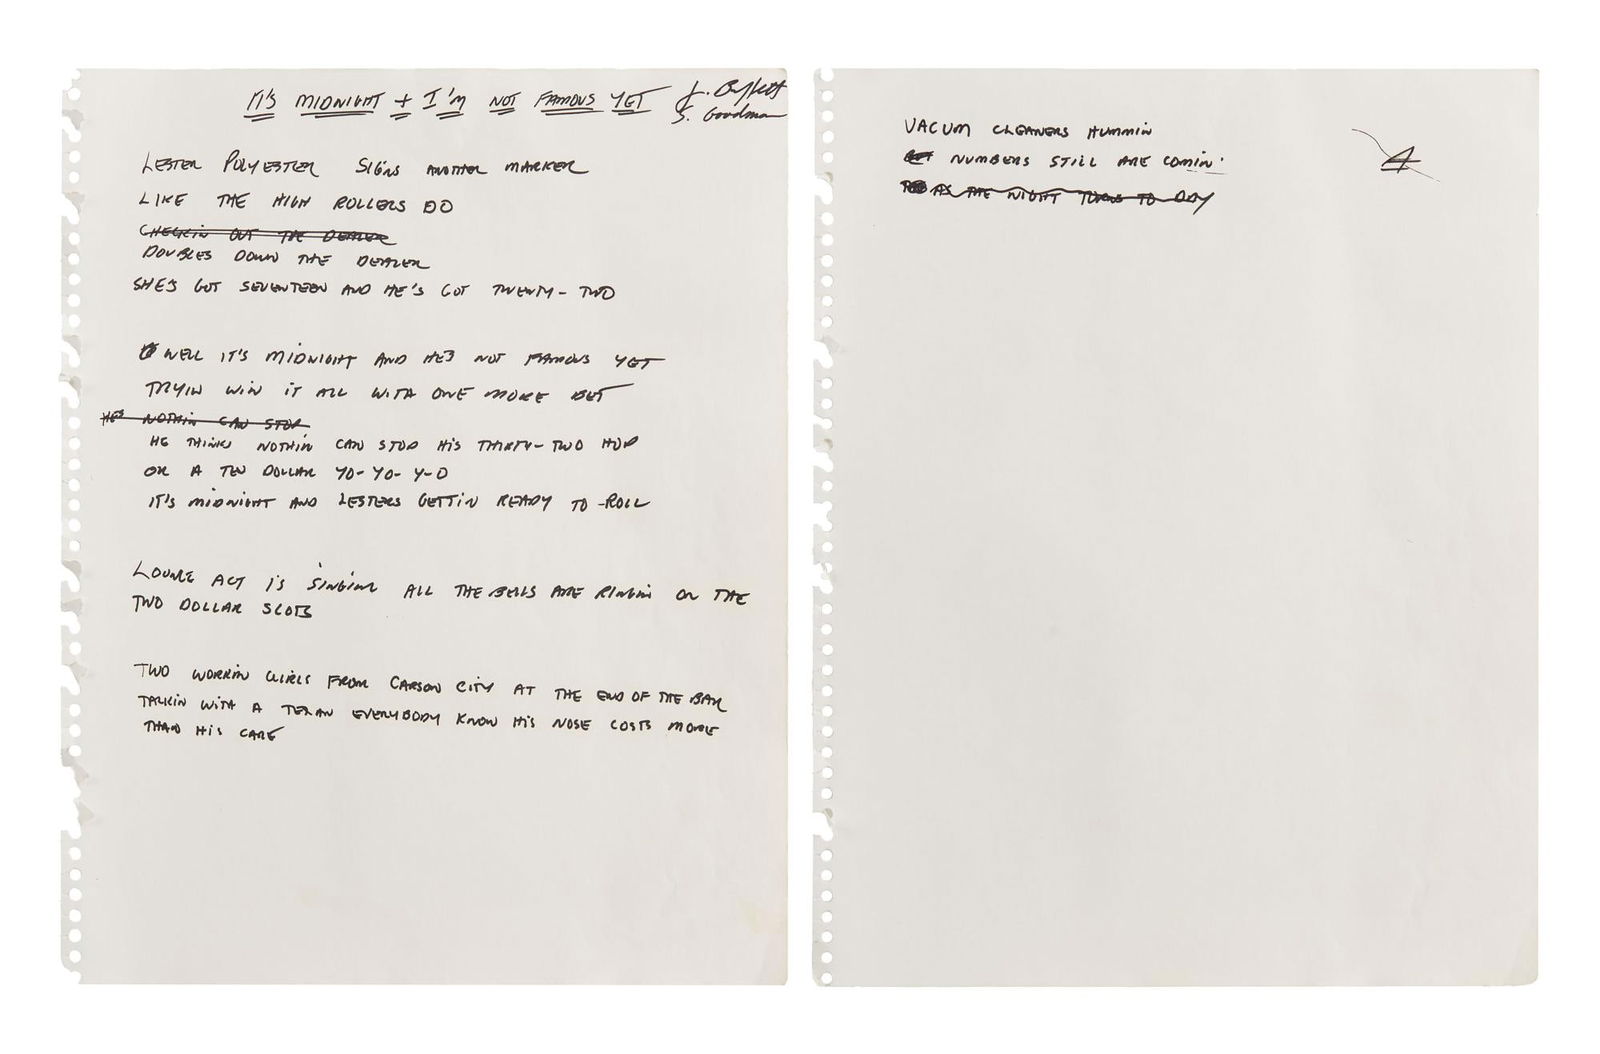 IT'S MIDNIGHT + I'M NOT FAMOUS YET J. Buffett
S. Goodman
LESTER POLYESTER SIGNS ANOTHER MARKER
LIKE THE HIGH ROLLERS DO
CHECKIN OUT THE DEALER
DOUBLES DOWN THE DEALER
SHE'S GOT SEVENTEEN AND HE'S GOT TWENTY-TWO
WELL IT'S MIDNIGHT AND HE'S NOT FAMOUS YET
TRYIN WIN IT ALL WITH ONE MORE BET
HE'S NOTHIN CAN STOP
HE THINKS NOTHIN CAN STOP HIS THIRTY-TWO HOP
OR A TEN DOLLAR YO-YO-Y-O
IT'S MIDNIGHT AND LESTERS GETTIN READY TO ROLL
LOUNGE ACT IS SINGIN ALL THE BELLS ARE RINGIN ON THE
TWO DOLLAR SLOTS
TWO WORKIN GIRLS FROM CARSON CITY AT THE END OF THE BAR
TALKIN WITH A TEXAN EVERYBODY KNOW HIS NOSE COSTS MORE
THAN HIS CARE
VACUM CLEANERS HUMMIN
NUMBERS STILL ARE COMIN'
AS THE NIGHT TURNS TO DAY